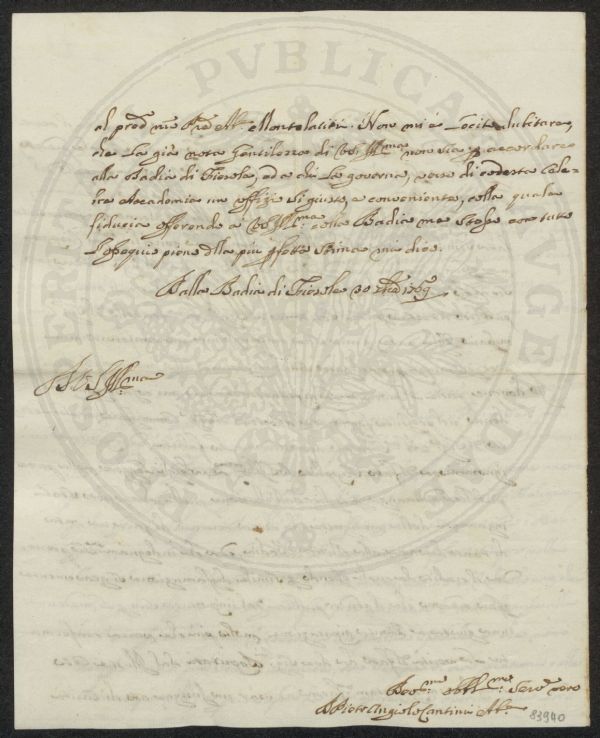 al pred.mo Pre Ab.e Montelatici. Non mi è Lecito dubitare,
che La già nota Gentilezza di VS Ill.ma non sia p accordare
alla Badia di Fiesole, ed a chi La governa, verso di codesta Cele-
bre Accademia un uffizio sì giusto, e conveniente, colla quale
fiducia offerendo a VS Ill.ma colla Badia me stesso con tutto
L'ossequio pieno della più pfetta stima mi dico.
Dalla Badia di Fiesole 30 1769
Di VS Ill.ma
Dev.mo Obbl.mo Serv.e vero
D Pietr'Angiolo Cantini Ab.e
83940
PVBLICAE